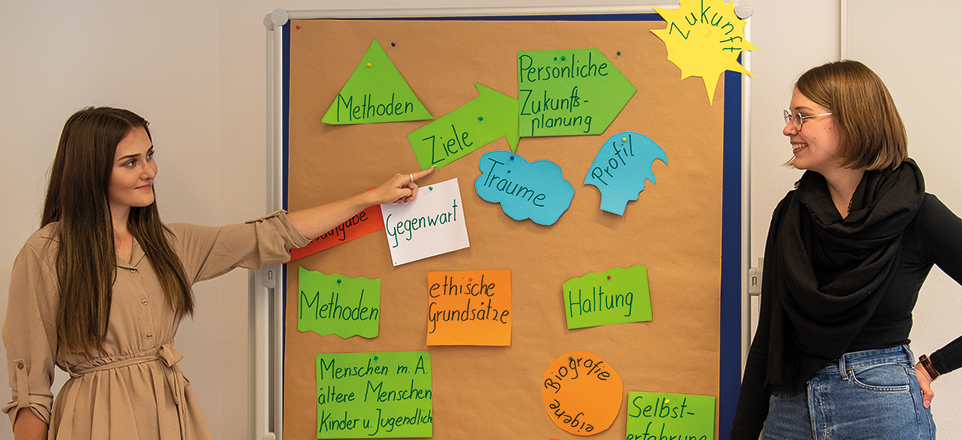 Zukunft
Methoden
Persönliche
Zukunfts-
planung
Ziele
Träume
Profil
Gegenwart
Methoden
ethische
Grundsätze
Haltung
Menschen m. A.
ältere Menschen
Kinder u. Jugendlich
eigene Biografie
Selbst-
erfahrung